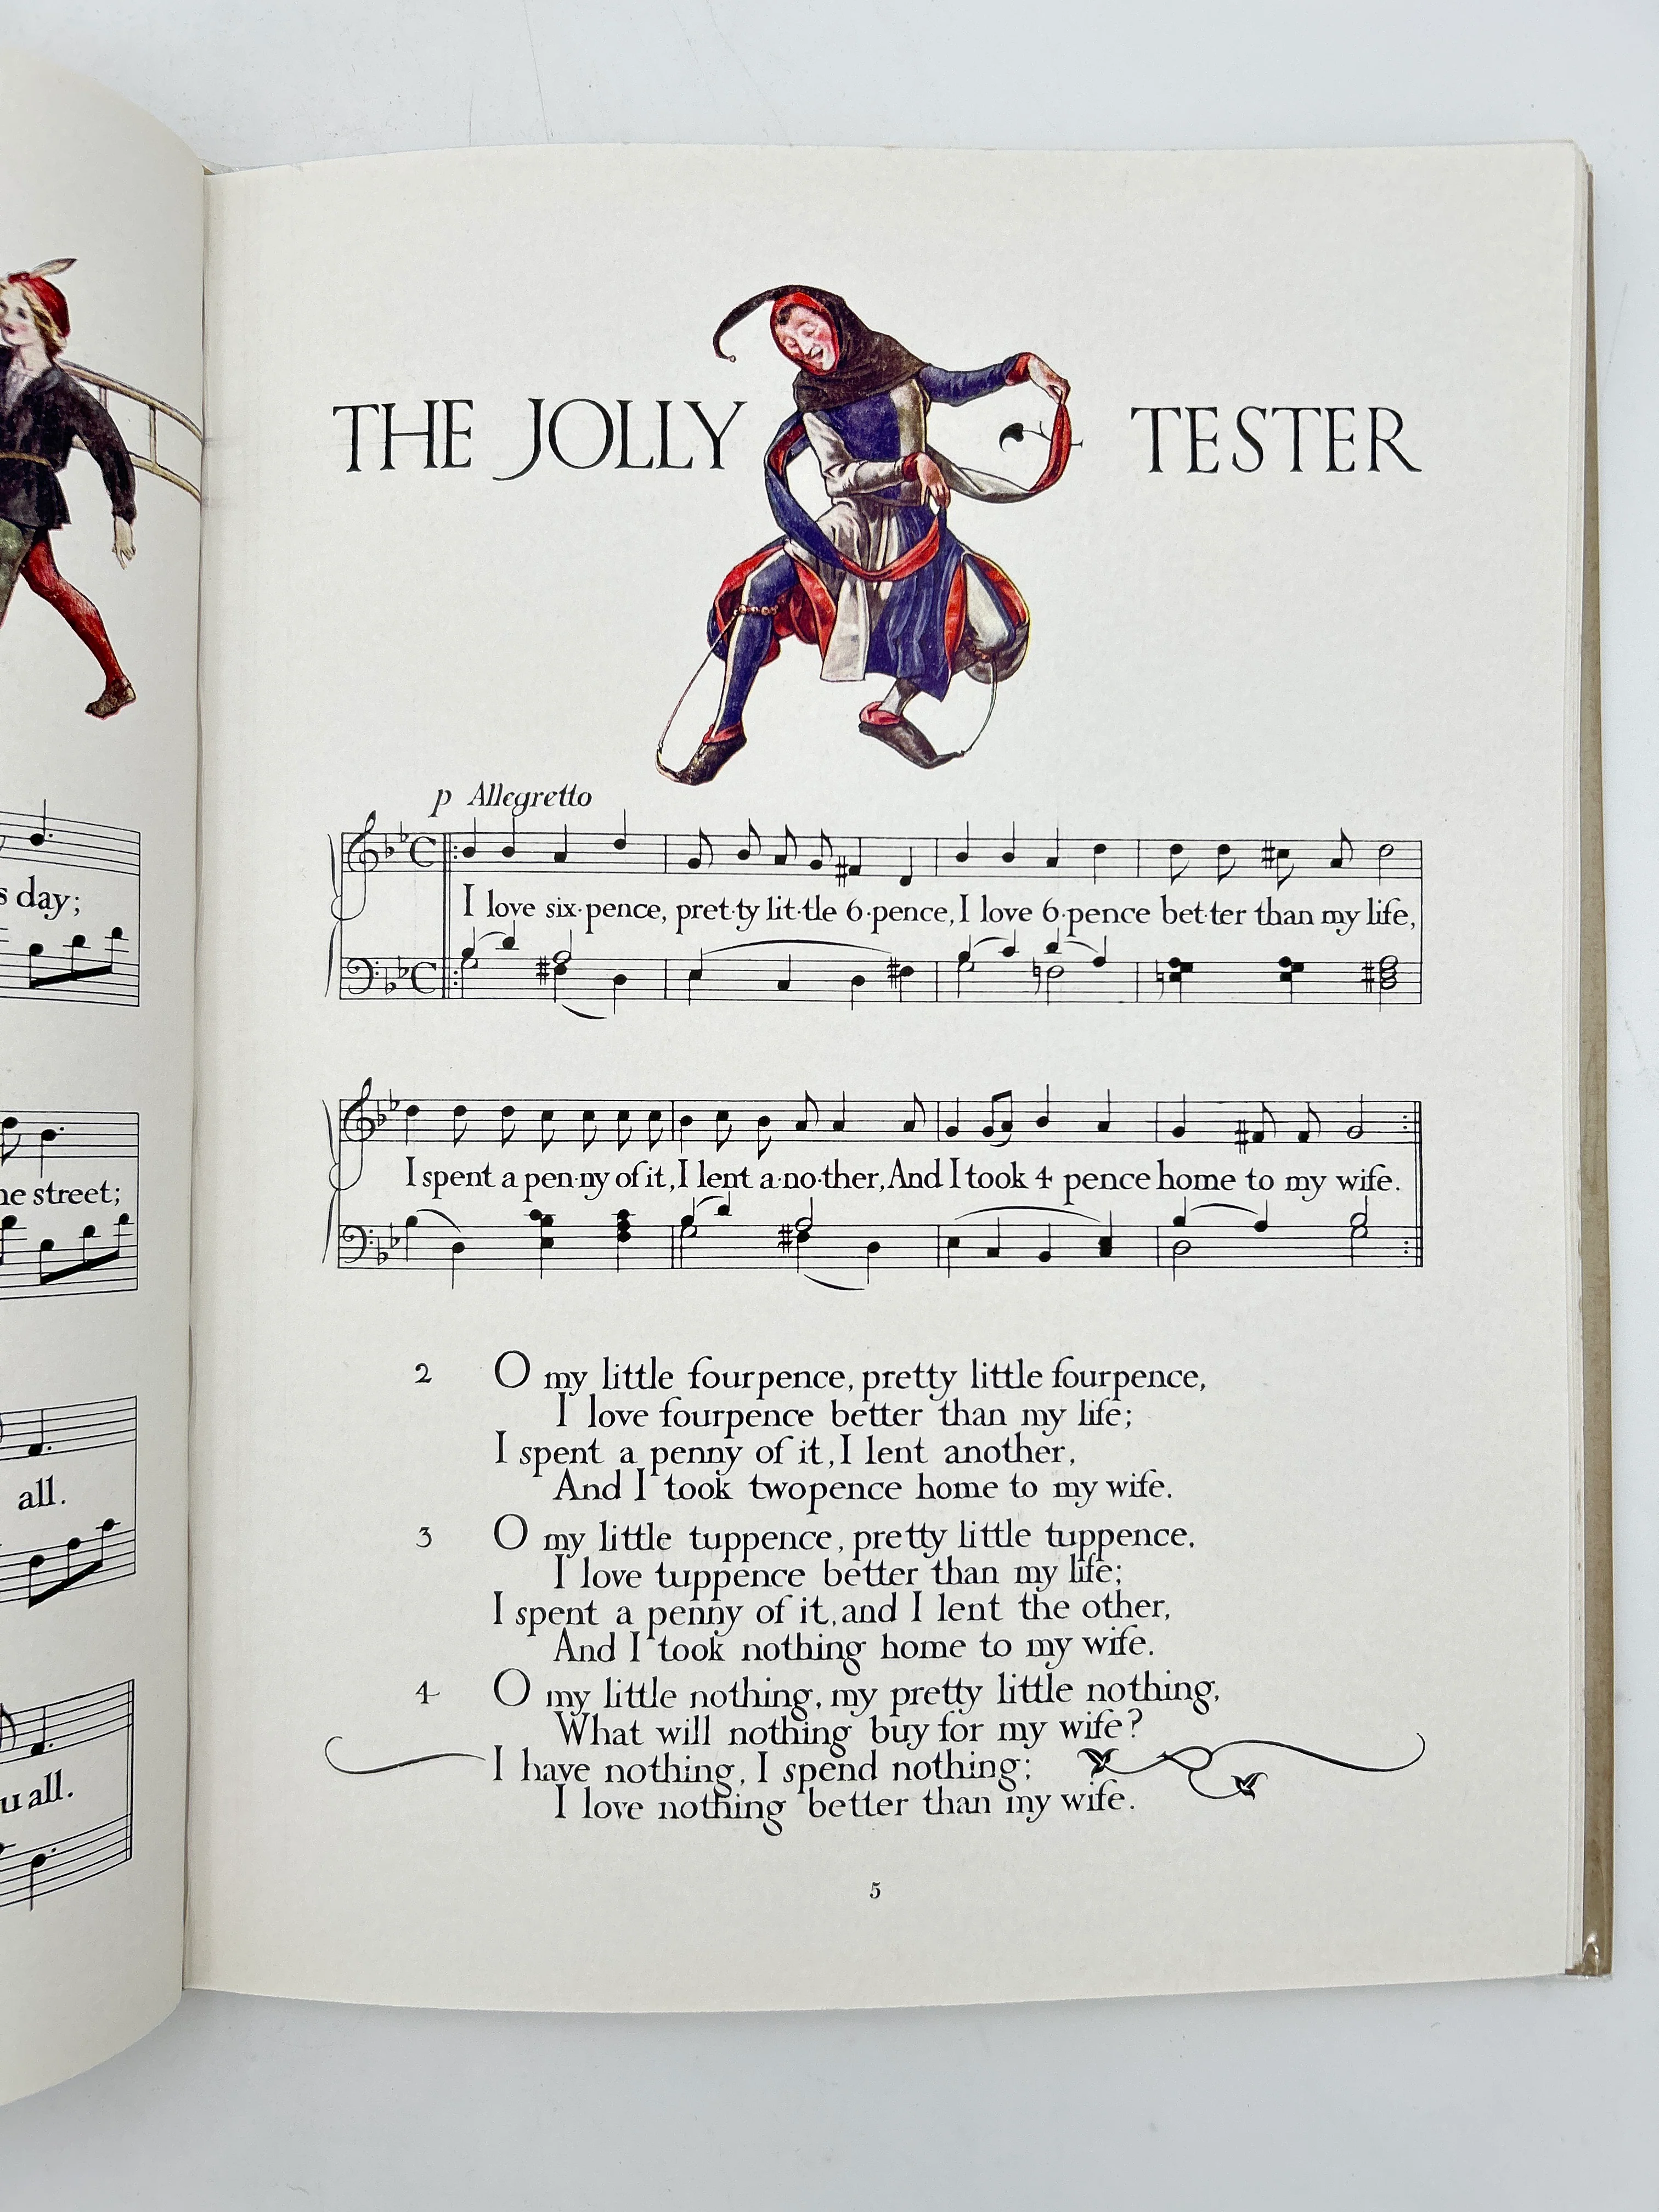 s day;
he street;
all.
u all.
THE JOLLY TESTER
p Allegretto
I love six-pence, pret-ty lit-tle 6-pence, I love 6-pence bet-ter than my life,
I spent a pen-ny of it, I lent a-no-ther, And I took 4 pence home to my wife.
2 O my little fourpence, pretty little fourpence,
I love fourpence better than my life;
I spent a penny of it, I lent another,
And I took twopence home to my wife.
3 O my little tuppence, pretty little tuppence,
I love tuppence better than my life;
I spent a penny of it, and I lent the other,
And I took nothing home to my wife.
4 O my little nothing, my pretty little nothing,
What will nothing buy for my wife?
I have nothing, I spend nothing;
I love nothing better than my wife.
5